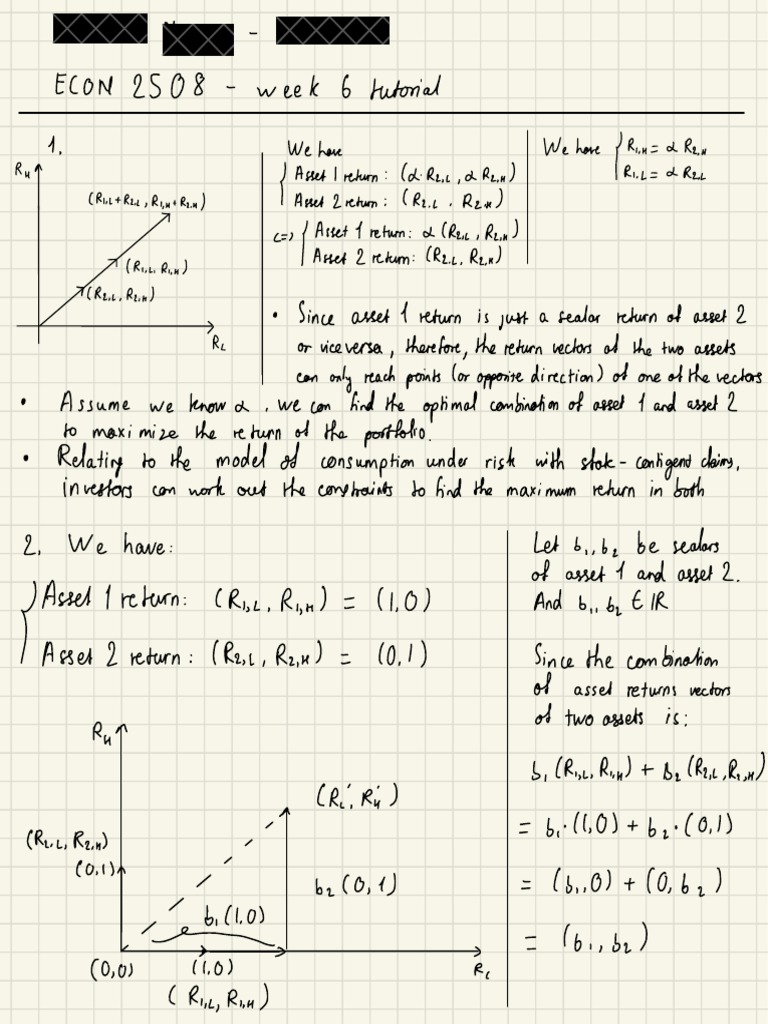 -
ECON 2508 - week 6 tutorial
1.
R_H
(R_{1,L}+R_{2,L}, R_{1,H}+R_{2,H})
(R_{1,L}, R_{1,H})
(R_{2,L}, R_{2,H})
R_L
We have
Asset 1 return: (α·R_{2,L}, α R_{2,H})
Asset 2 return: (R_{2,L}, R_{2,H})
<=> Asset 1 return: α (R_{2,L}, R_{2,H})
Asset 2 return: (R_{2,L}, R_{2,H})
We have { R_{1,H} = α R_{2,H}
R_{1,L} = α R_{2,L}
• Since asset 1 return is just a scalar return of asset 2
or vice versa, therefore, the return vectors of the two assets
can only reach points (or opposite direction) of one of the vectors
• Assume we know α, we can find the optimal combination of asset 1 and asset 2
to maximize the return of the portfolio.
• Relating to the model of consumption under risk with state-contigent claims,
investors can work out the constraints to find the maximum return in both
2. We have:
Asset 1 return: (R_{1,L}, R_{1,H}) = (1,0)
Asset 2 return: (R_{2,L}, R_{2,H}) = (0,1)
R_H
(R_L', R_H')
(R_{2,L}, R_{2,H})
(0,1)
b_2 (0,1)
b_1 (1,0)
(0,0)
(1,0)
R_L
(R_{1,L}, R_{1,H})
Let b_1, b_2 be scalars
of asset 1 and asset 2.
And b_1, b_2 ∈ IR
Since the combination
of asset returns vectors
of two assets is:
b_1 (R_{1,L}, R_{1,H}) + b_2 (R_{2,L}, R_{2,H})
= b_1·(1,0) + b_2·(0,1)
= (b_1,0) + (0,b_2)
= (b_1, b_2)